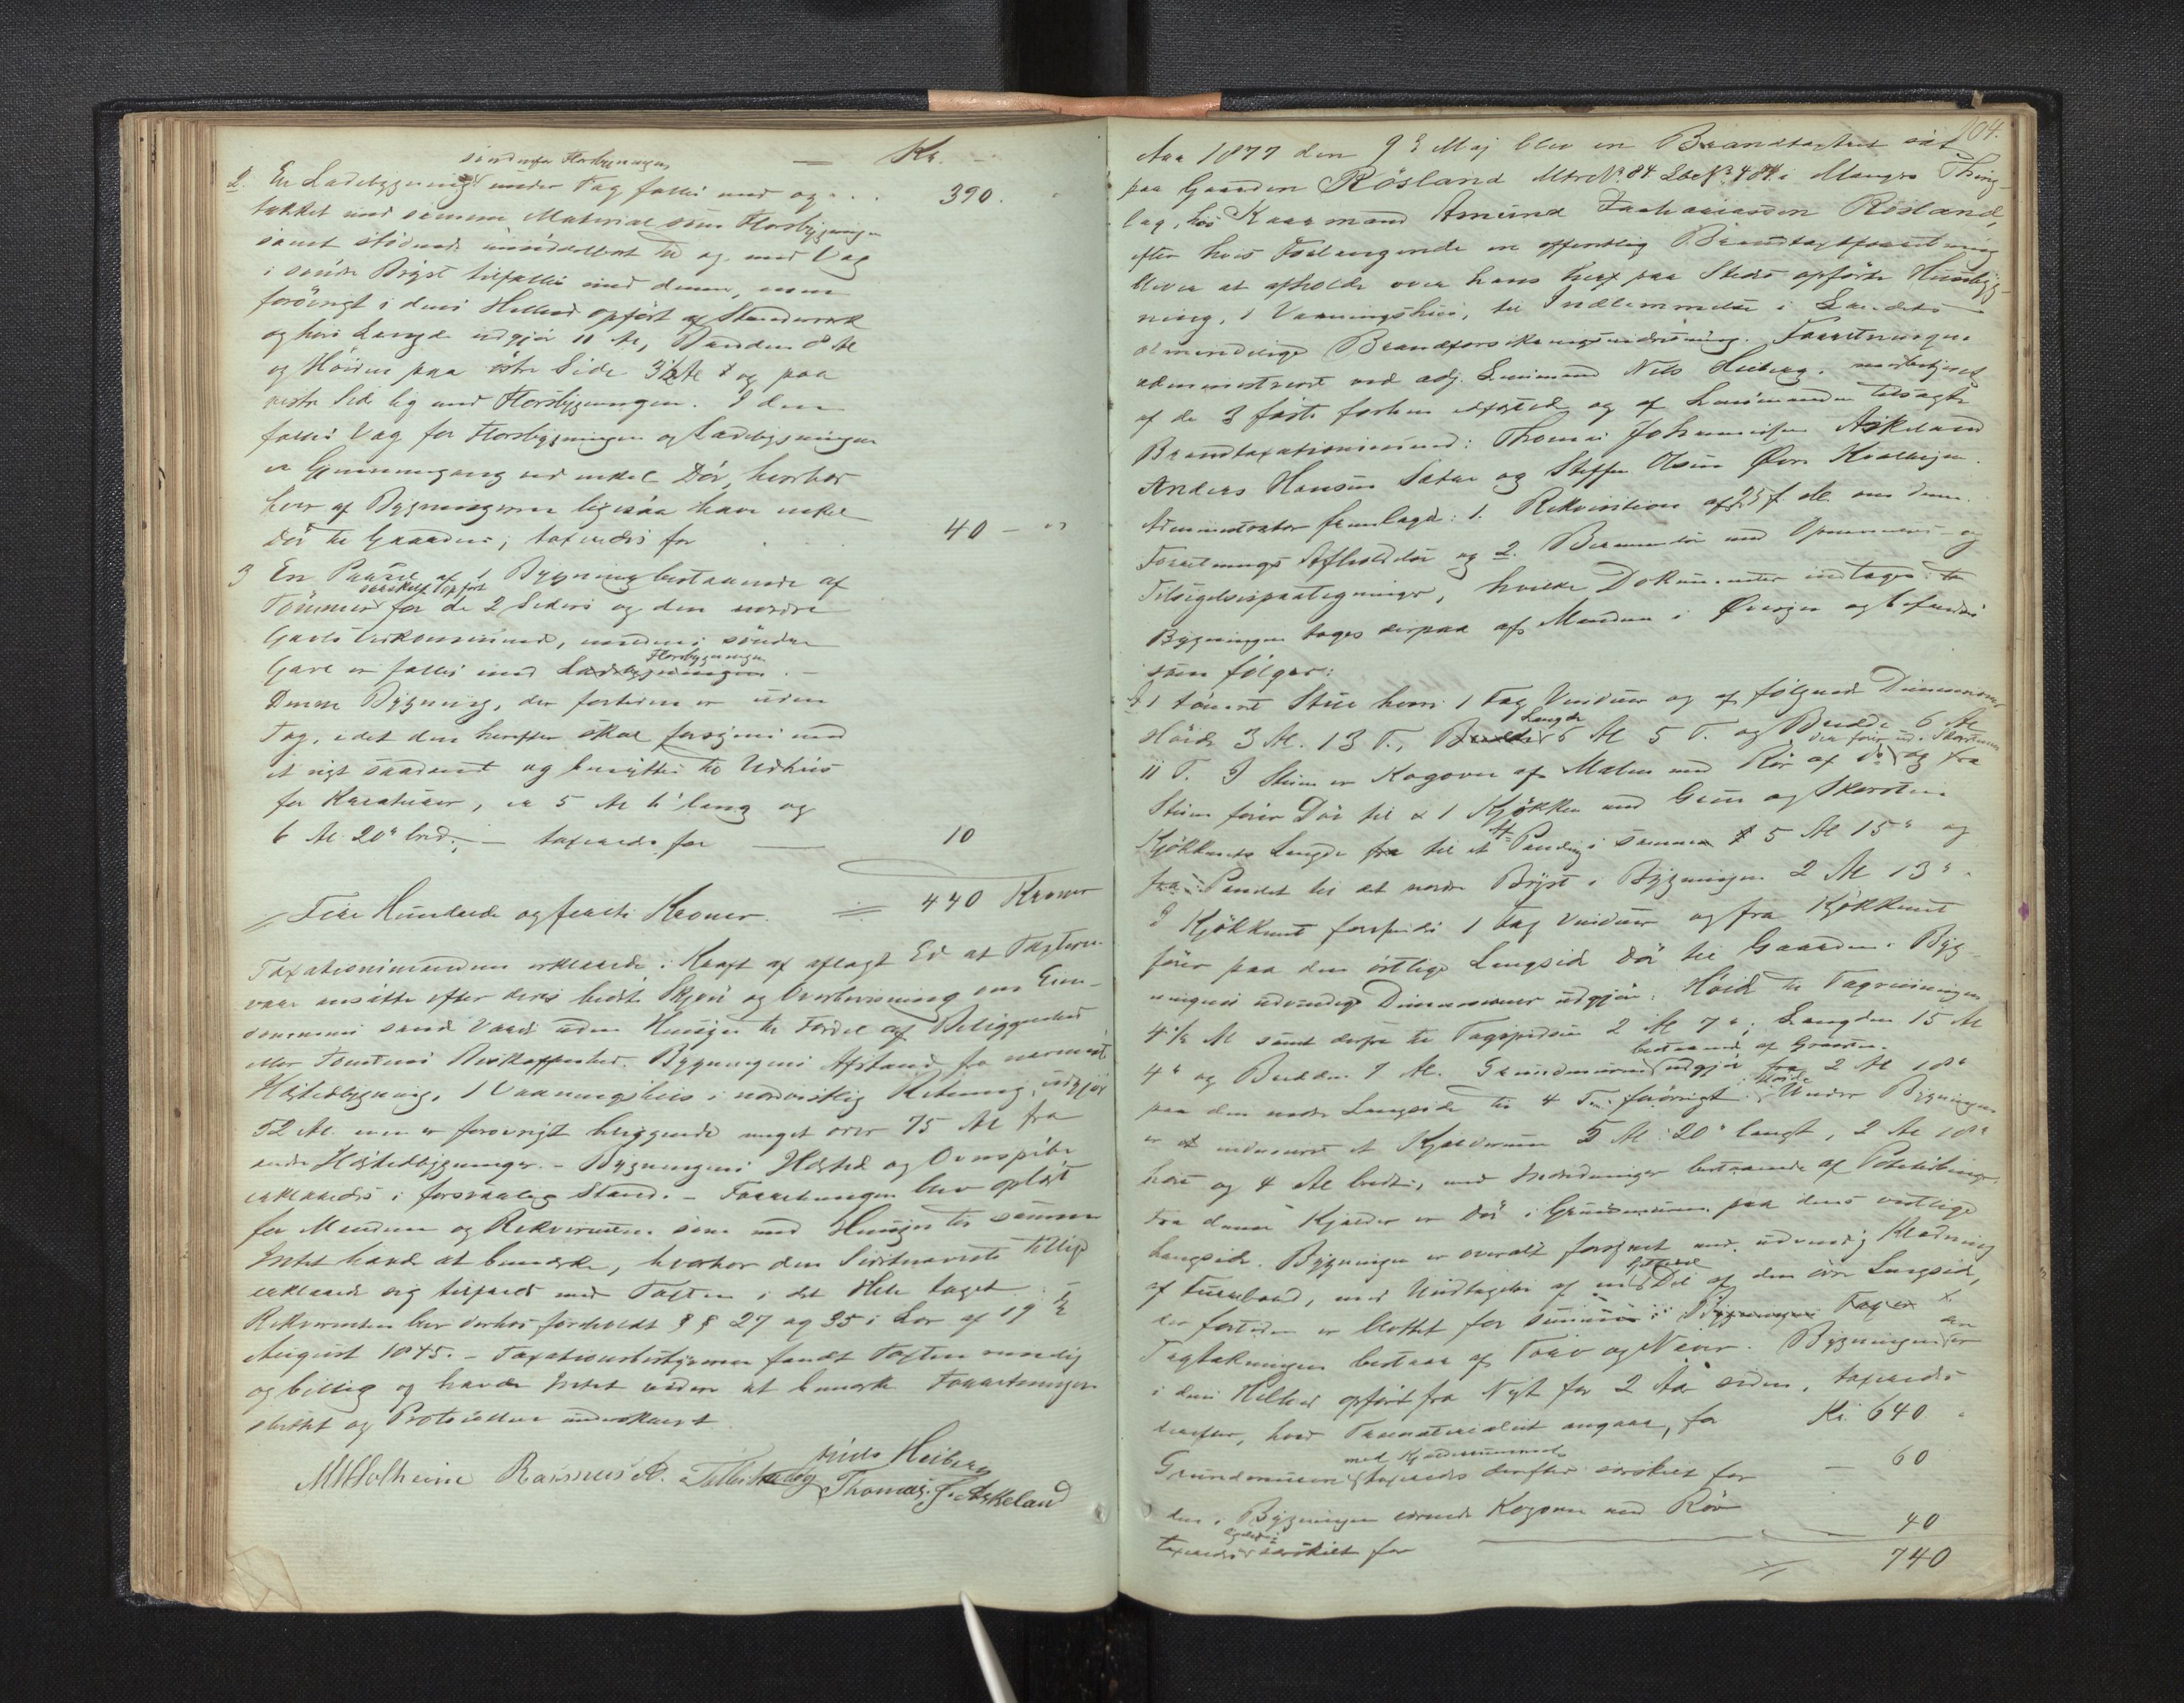 søndenfor Florsbygningen = Kr. -
2. En Ladebygning under Tag fælles med og . . . 390.
tækket med samme Materiale som Florsbygningen
samt stödende umiddelbart til og med Væg
i søndre Bryst tilfælles med denne, men
forövrigt i dens Helhed opfört af Stavverk
og hvis Længde udgjör 11 Al, Bredden 8 Al
og Höiden paa östre Side 3½ Al og paa
vestre Side lig med Florsbygningen. I den
fælles Væg for Florsbygningen og Ladebygningen
er Gjennemgang ved enkel Dör, hvorhos
hver af Bygningerne ligesaa have enkel
Dör til Gaarden; taxeredes for . . . 40 – "
3 En Part af 1 Bygning bestaaende af
særskilt opfört
Tömmer for de 2 Siders og den nordre
Gavls Vedkommende, medens søndre
Florsbygningen
Gavl er fælles med Ladebygningen. –
Denne Bygning, der fortiden er uden
Tag, idet den herefter skal forsynes med
et nyt saadant og benyttes til Udhus
for Kreaturer, er 5 Al 6" lang og
6 Al 20" bred; – taxeredes for — 10
Fire Hundrede og firti Kroner. = 440 Kroner
Taxationsmændene erklærede i Kraft af aflagt Ed at Taxterne
vare ansatte efter deres bedste Skjön og Overbevisning om Eien-
dommens sande Værd uden Hensyn til Fordel af Beliggenhed
eller Tomtens Beskaffenhed. Bygningens Afstand fra nærmeste
Ildstedsbygning, 1 Vaaningshus i nordvestlig Retning, udgjör
52 Al. men er forövrigt beliggende meget over 75 Al fra
andre Ildstedsbygninger. – Bygningens Ildsted og Ovnspibe
erklæredes i forsvarlig Stand. – Forretningen blev oplæst
for Mændene og Rekvirenten som med Hensyn til samme
Intet havde at bemærke, hvorhos den Sidstnævnte tillige
erklærede sig tilfreds med Taxten i det Hele taget.
Rekvirenten blev derhos foreholdt § § 27 og 35 i Lov af 19
August 1845. – Taxationsbestyreren fandt Taxten rimelig
og billig og havde Intet videre at bemærke Forretningen
sluttet og Protokollen underskrevet
Niels Heiberg
M Molheim Rasmus A. Thomas J. Askeland
104.
Aar 1877 den 9d Maj blev en Brandtaxtret sat
paa Gaarden Rösland Mtr No 84 Lbe No 484 i Mangers Thing-
lag, hos Kaarmand Amund Zachariassen Rösland,
efter hvis Forlangende en offentlig Brandtaxtforretning
bliver at afholde over hans her paa Stedet opförte Husbyg-
ning, 1 Vaaningshus, til Indlemmelse i Landets
almindelige Brandforsikringsindretning. Forretningen
administreret ved adj. Lensmand Nils Heiberg, medbetjent
af de 3 faste forhen edfæstede og af Lensmanden tilsagte
Brandtaxationsmænd: Thomas Johannessen Askeland
Anders Hansen Sætre og Steffen Olsen Øvre Kvalheim.
Administrator fremlagde: 1. Rekvisition af 25 f. M. om denne
Forretnings Afholdelse og 2. Berammelse med Opnævnelses- og
Tilsigelsespaategninger, hvilke Dokumenter indtages:
Bygningen toges derpaa af Mændene i Øiesyn og befandtes
som fölger:
I 1 tömret Stue hvori 1 Fag Vinduer og af fölgende Dimensioner
Længde
Höide 3 Al. 13 T., Bredde 6 Al 5 T. og Bredde 6 Al
der förer ud i Skorstenen
11 T. I Stuen er Kogovn af Malm med Rör af do og fra
Stuen förer Dör til 1 Kjökken med Grue og Skorsten
Kjökkenets Længde fra til et Panding i samme 5 Al 15" og
fra Pandet til det nordre Bryst i Bygningen 2 Al 13".
I Kjökkenet forefindes 1 Fag Vinduer og fra Kjökkenet
förer paa den östlige Langside Dör til Gaarden. Byg-
ningens udvendige Dimensioner udgjör: Höide til Tagrenningen
4½ Al samt derfra til Tagspidsen 2 Al 7"; Længden 15 Al
bestaaende af Graasten
4" og Bredden 7 Al. Grundmuren udgjör fra 2 Al 18"
Höide
paa den nedre Langside til 4 T. forövrigt. Under Bygningen
er et indmuret et Kjælderrum 5 Al 20" langt, 2 Al 18"
höit og 4 Al bredt, med Indredninger bestaaende af Potetesbinger.
Fra denne Kjælder er Dör i Grundmuren paa dens vestlige
Langside. Bygningen er overalt forsynet med udvendig Klædning
af Furubord, med Undtagelse af en Del af den övre Langside,
der fortiden er blottet for samme. Bygningens Tag er
Tagtækningen bestaar af Torv og Never. Bygningen er
i dens Helhed opfört fra Nyt for 2 Aar siden, taxeredes
derefter, hvad Træmaterialet angaar, for Kr. 640 "
med Kjælderrummet
Grundmuren taxeredes derefter særskilt for – 60
den i Bygningen værende Kogovn med Rör
taxeredes særskilt for 40
740